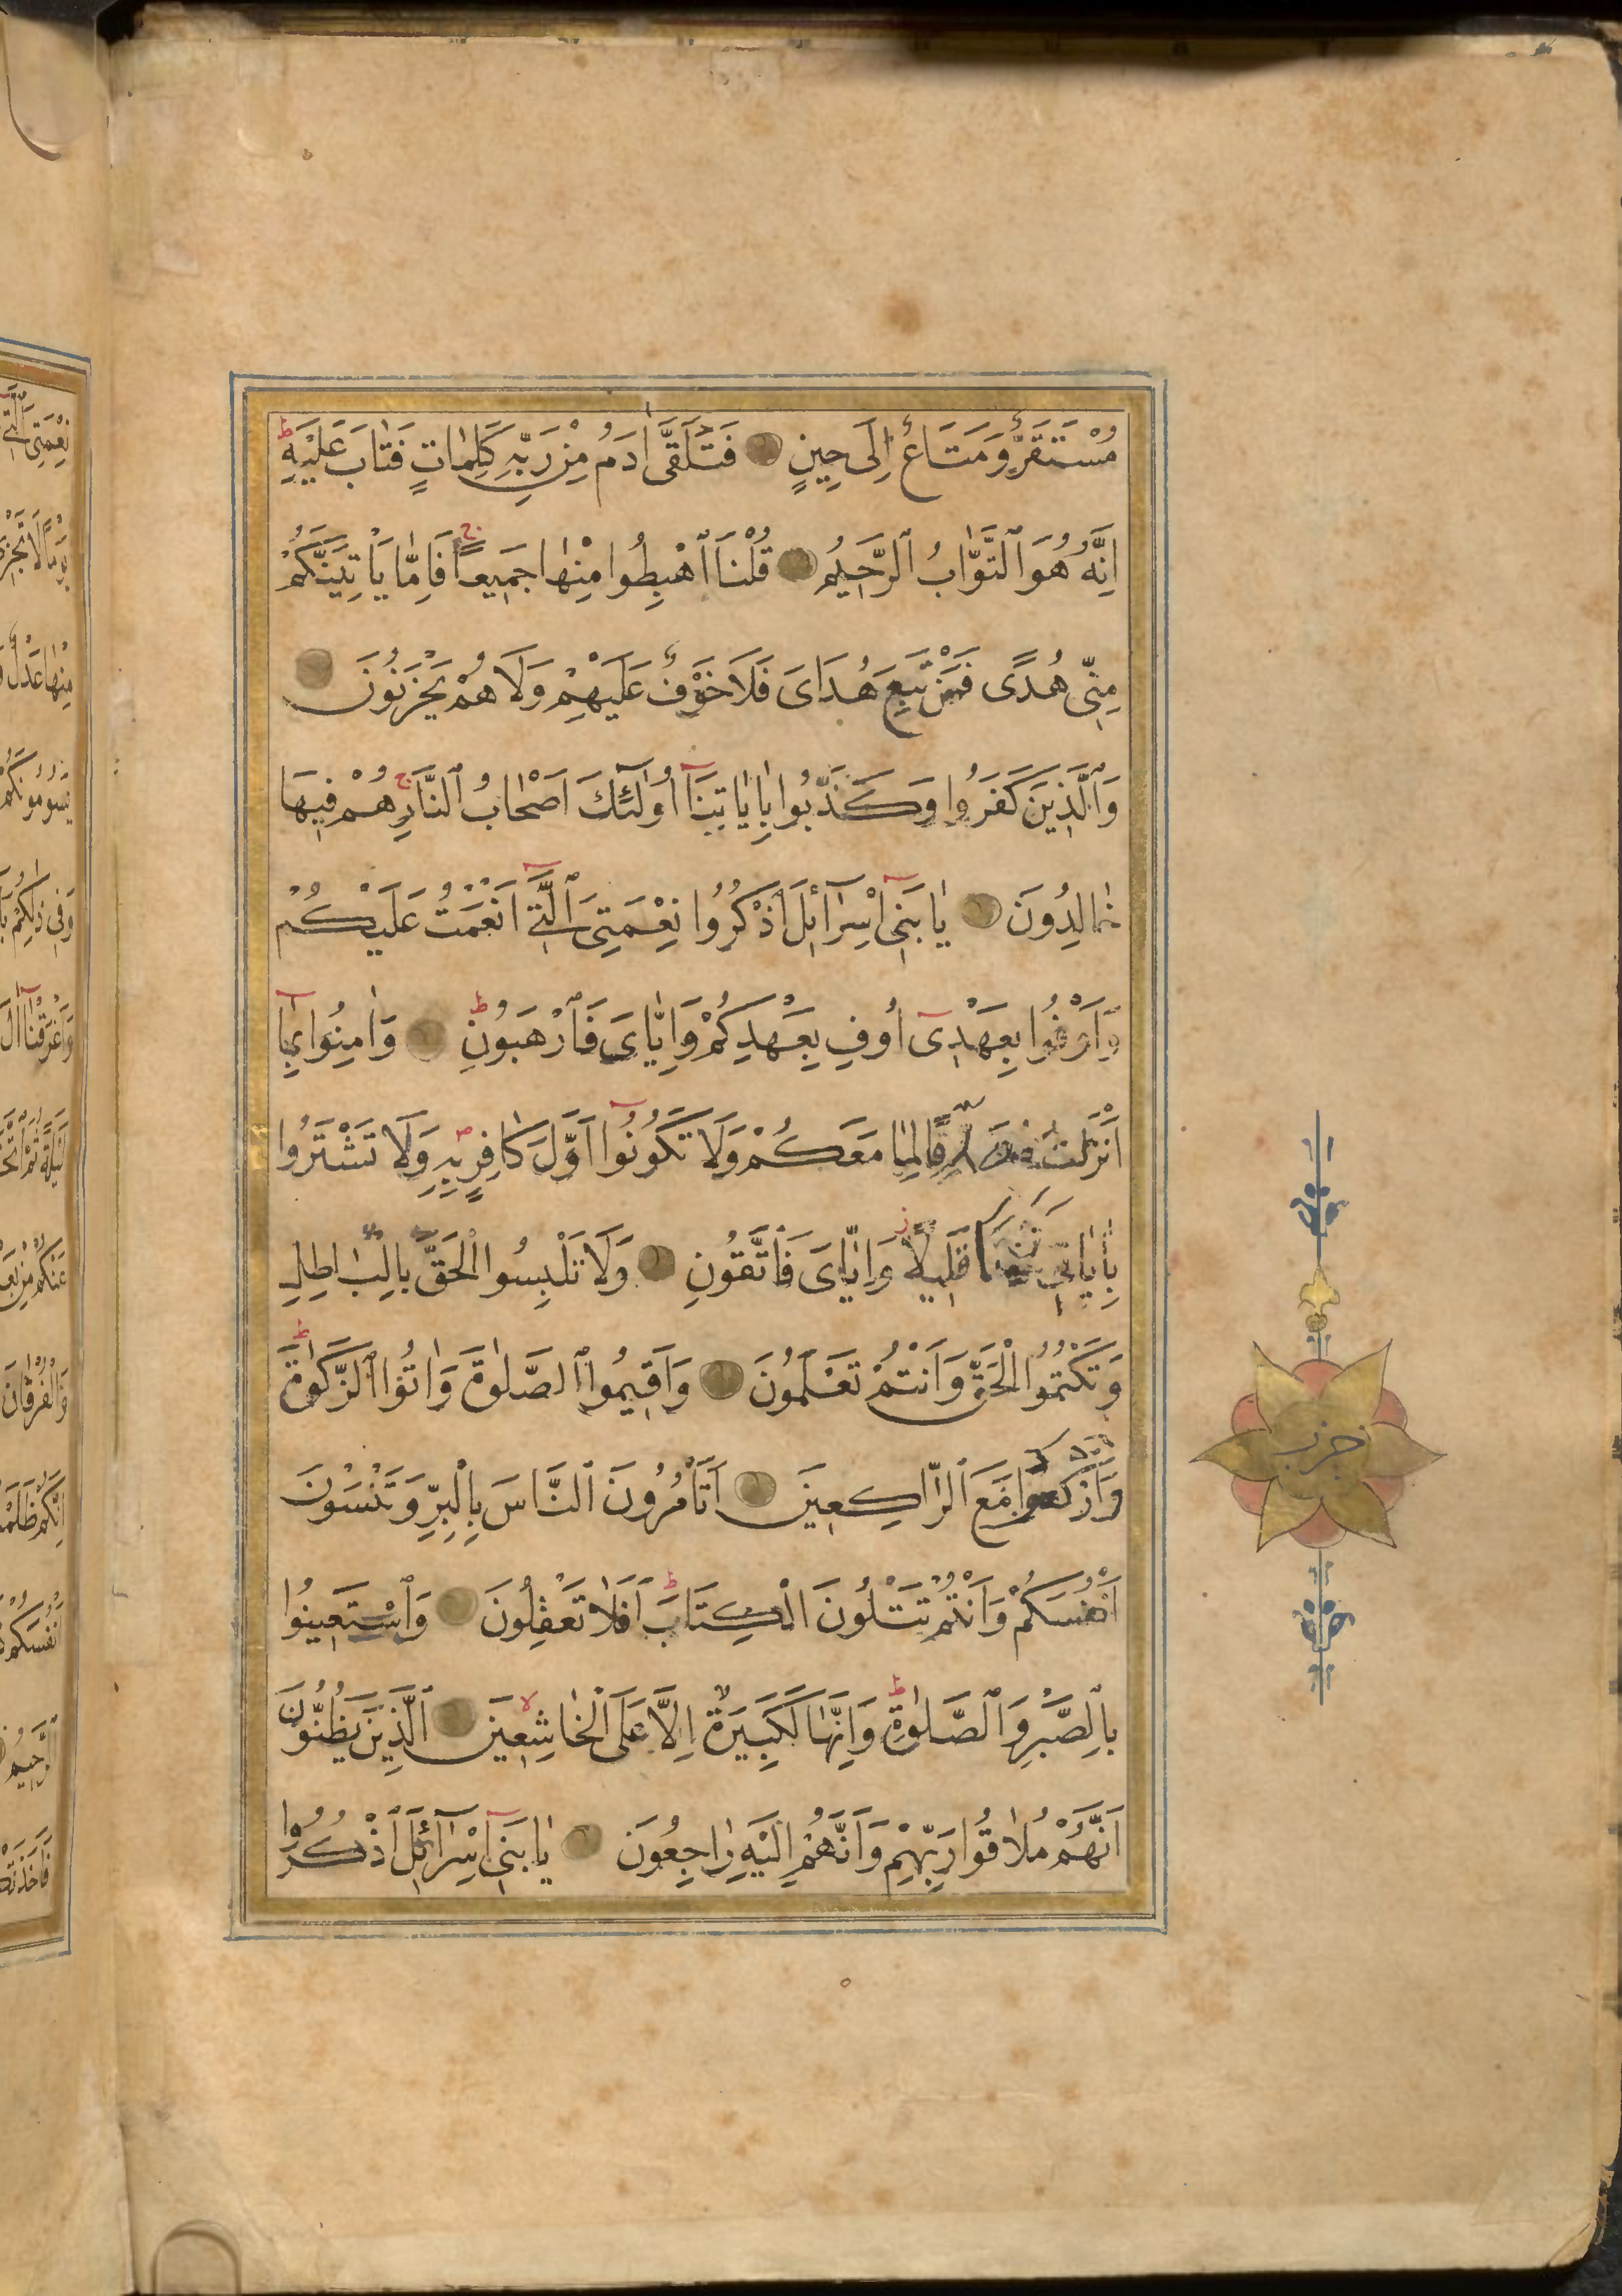 مُسْتَقَرٌّ وَمَتَاعٌ اِلَى حِينٍ فَتَلَقَّى اٰدَمُ مِنْ رَبِّهِ كَلِمَاتٍ فَتَابَ عَلَيْهِ ط
اِنَّهُ هُوَ ٱلتَّوَّابُ ٱلرَّحِيمُ قُلْنَا ٱهْبِطُوا مِنْهَا جَمِيعًا ج فَاِمَّا يَاْتِيَنَّكُمْ
مِنِّى هُدًى فَمَنْ تَبِعَ هُدَاىَ فَلَا خَوْفٌ عَلَيْهِمْ وَلَا هُمْ يَحْزَنُونَ
وَٱلَّذِينَ كَفَرُوا وَكَذَّبُوا بِاٰيَاتِنَآ اُولٰٓئِكَ اَصْحَابُ ٱلنَّارِ ج هُمْ فِيهَا
خَالِدُونَ يَا بَنِىٓ اِسْرَآئِلَ ٱذْكُرُوا نِعْمَتِىَ ٱلَّتِىٓ اَنْعَمْتُ عَلَيْكُمْ
وَاَوْفُوا بِعَهْدِىٓ اُوفِ بِعَهْدِكُمْ وَاِيَّاىَ فَٱرْهَبُونِ ط وَاٰمِنُوا بِمَآ
اَنْزَلْتُ مُصَدِّقًا لِمَا مَعَكُمْ وَلَا تَكُونُوٓا اَوَّلَ كَافِرٍ بِهِ ص وَلَا تَشْتَرُوا
بِاٰيَاتِى ثَمَنًا قَلِيلًا ز وَاِيَّاىَ فَٱتَّقُونِ وَلَا تَلْبِسُوا الْحَقَّ بِالْبَاطِلِ
وَتَكْتُمُوا الْحَقَّ وَاَنْتُمْ تَعْلَمُونَ وَاَقِيمُوا ٱلصَّلٰوةَ وَاٰتُوا ٱلزَّكٰوةَ ط
وَٱرْكَعُوا مَعَ ٱلرَّاكِعِينَ اَتَاْمُرُونَ ٱلنَّاسَ بِالْبِرِّ وَتَنْسَوْنَ
اَنْفُسَكُمْ وَاَنْتُمْ تَتْلُونَ الْكِتَابَ ط اَفَلَا تَعْقِلُونَ وَٱسْتَعِينُوا
بِٱلصَّبْرِ وَٱلصَّلٰوةِ ط وَاِنَّهَا لَكَبِيرَةٌ اِلَّا عَلَى ٱلْخَاشِعِينَ لا ٱلَّذِينَ يَظُنُّونَ
اَنَّهُمْ مُلَاقُوا رَبِّهِمْ وَاَنَّهُمْ اِلَيْهِ رَاجِعُونَ يَا بَنِىٓ اِسْرَآئِلَ ٱذْكُرُوا